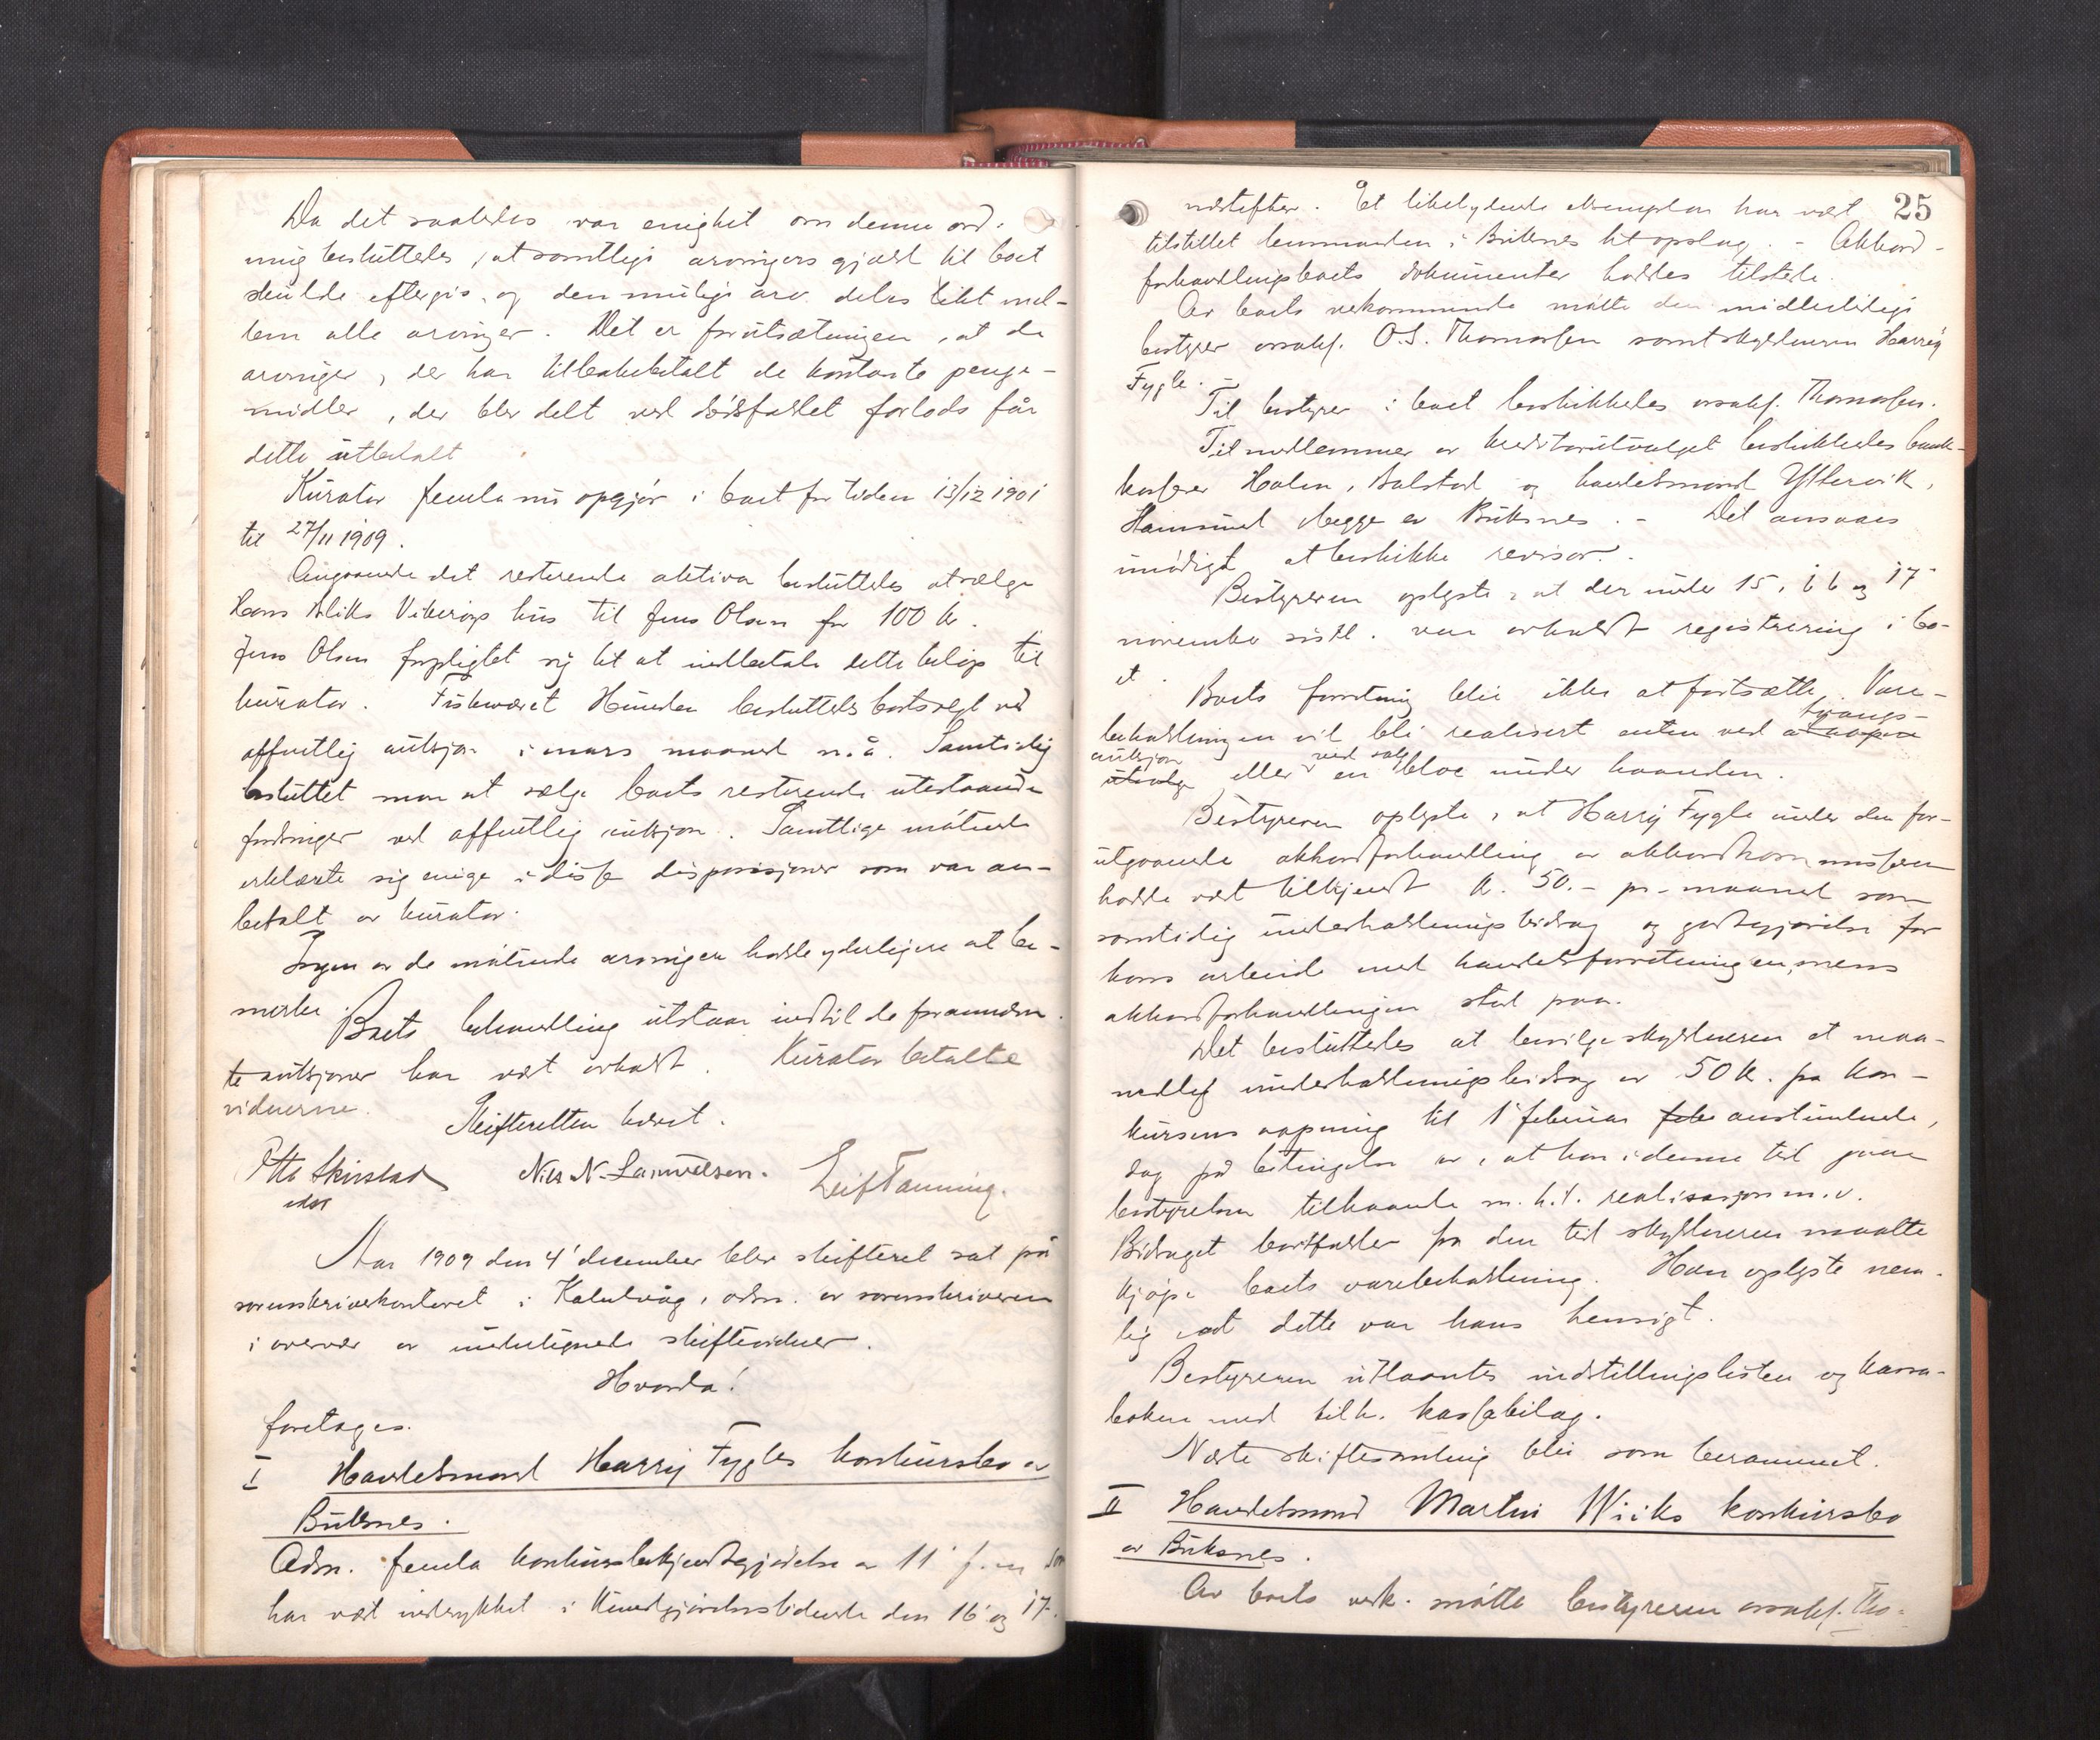 Da det saaledes var enighet om denne ord-
ning besluttedes, at samtlige arvingers gjæld til boet
skulde eftergis, og den mulige arv deles likt mel-
lem alle arvinger. Det er forutsætningen, at de
arvinger, der har tilbakebetalt de kontante penge-
midler, der blev delt ved dødsfaldet forlods får
dette utbetalt
Kurator fremla nu opgjør i boet for tiden 13/12 1901
til 27/11 1909.
Angaaende det resterende aktiva besluttedes at sælge
Hans Eliks hus til Jens Olsen for 100 kr.
Jens Olsen forpligtet sig til at indbetale dette beløp til
kurator. Fiskeværet Hunden besluttedes bortsolgt ved
offentlig auksjon i mars maaned n.å. Samtidig
besluttet man at sælge boets resterende utestaaende
fordringer ved offentlig auksjon. Samtlige møtende
erklærte sig enige i disse disposisjoner som var an-
befalt av kurator.
Ingen av de møtende arvinger hadde yderligere at be-
merke.
Boets behandling utstaar indtil de forannævn-
te auksjoner har vært avholdt. Kurator betalte
vidnerne.
Skifteretten hævet.
Otto Skirstad Nils N. Samuelsen. Leif Tanning.
edsv
Aar 1909 den 4' december blev skifteret sat på
sorenskriverkontoret i Kabelvåg, adm. av sorenskriveren
i overvær av undertegnede skiftevidner.
Hvorda!
foretages.
I Handelsmand Harry Fygles konkursbo av
Buksnes.
Adm. fremla konkursbekjendtgjørelse av 11' f.m. som
har vært indrykket i Kundgjørelsestidende den 16' og 17'.
25
næstefter. Et likelydende eksemplar har vært
tilstillet lensmanden i Buksnes til opslag. - Akkord-
forhandlingsboets dokumenter haddes tilstede.
Av boets vedkommende møtte den midlertidige
bestyrer ovsakf. O.S. Thomassen samt skyldneren Harry
Fygle. -
Til bestyrer i boet beskikkedes ovsakf. Thomassen.
Til medlemmer av kreditorutvalget beskikkedes bank-
kasserer Holm, Balstad og handelsmand Yttervik,
Hamsund begge av Buksnes. - Det ansaaes
unødigt at beskikke revisor.
Bestyreren oplyste, at der under 15, 16 og 17'
november sistl. var avholdt registrering i bo-
et.
Boets forretning blir ikke at fortsætte. Vare-
beholdningen vil bli realisert enten ved tvangs-
auksjon eller ved salg en bloc under haanden.
Bestyreren oplyste, at Harry Fygle under den for-
utgaaende akkordforhandling av akkordkommissæren
hadde vært tilkjendt kr. 50.- pr. maaned som
samtidig underholdningsbidrag og godtgjørelse for
hans arbeide med handelsforretningen, mens
akkordforhandlingen stod paa.
Det besluttedes at bevilge skyldneren et maa-
nedlig underholdningsbidrag av 50 kr. fra kon-
kursens aapning til 1' februar anstundende,
dog på betingelse av, at han i denne tid gaar
bestyrelsen tilhaande m.h.t. realisasjon m.v.
Bidraget bortfalder fra den tid skyldneren maatte
kjøpe boets varebeholdning. Han oplyste nem-
lig at dette var hans hensigt.
Bestyreren utlaantes indstillingslisten og kassa-
boken med tilh. kassabilag.
Næste skiftesamling blir som berammet.
II Handelsmand Martin Wiiks konkursbo
av Buksnes.
Av boets vedk. møtte bestyreren ovsakf. Tho-